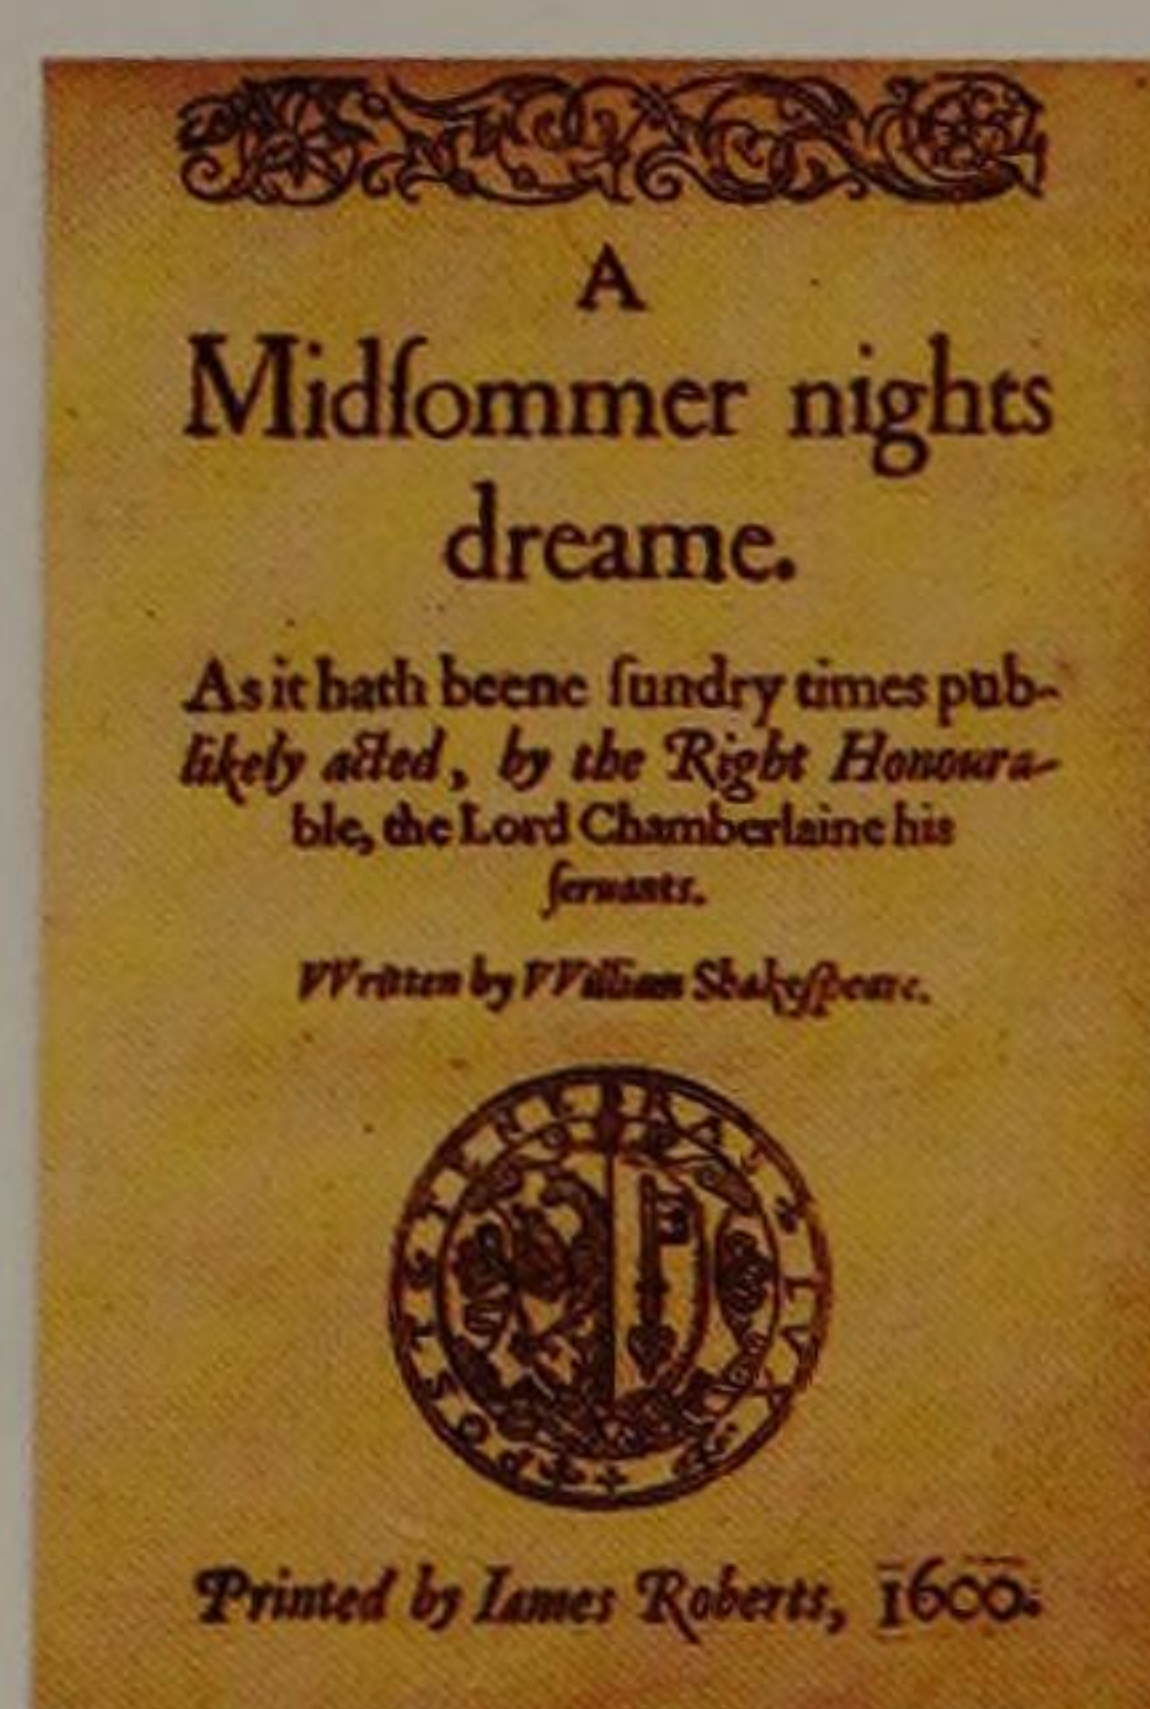 A
Midſommer nights
dreame.
As it hath beene ſundry times pub-
likely acted, by the Right Honoura-
ble, the Lord Chamberlaine his
ſeruants.
VVritten by VVilliam Shakeſpeare.
POST TENEBRAS LVX
Printed by Iames Roberts, 1600.